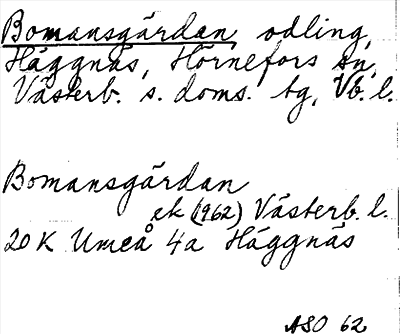 Bomansgärdan, odling,
Häggnäs, Hörnefors sn,
Västerb. s. doms. tg, Vb. l.
Bomansgärdan
ek (1962) Västerb. l.
20 K Umeå 4a Häggnäs
ASO 62